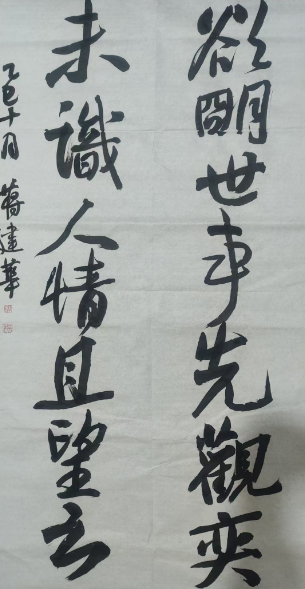 欲朙世事先觀奕
未識人情且望云
乙巳十月 蔣建華